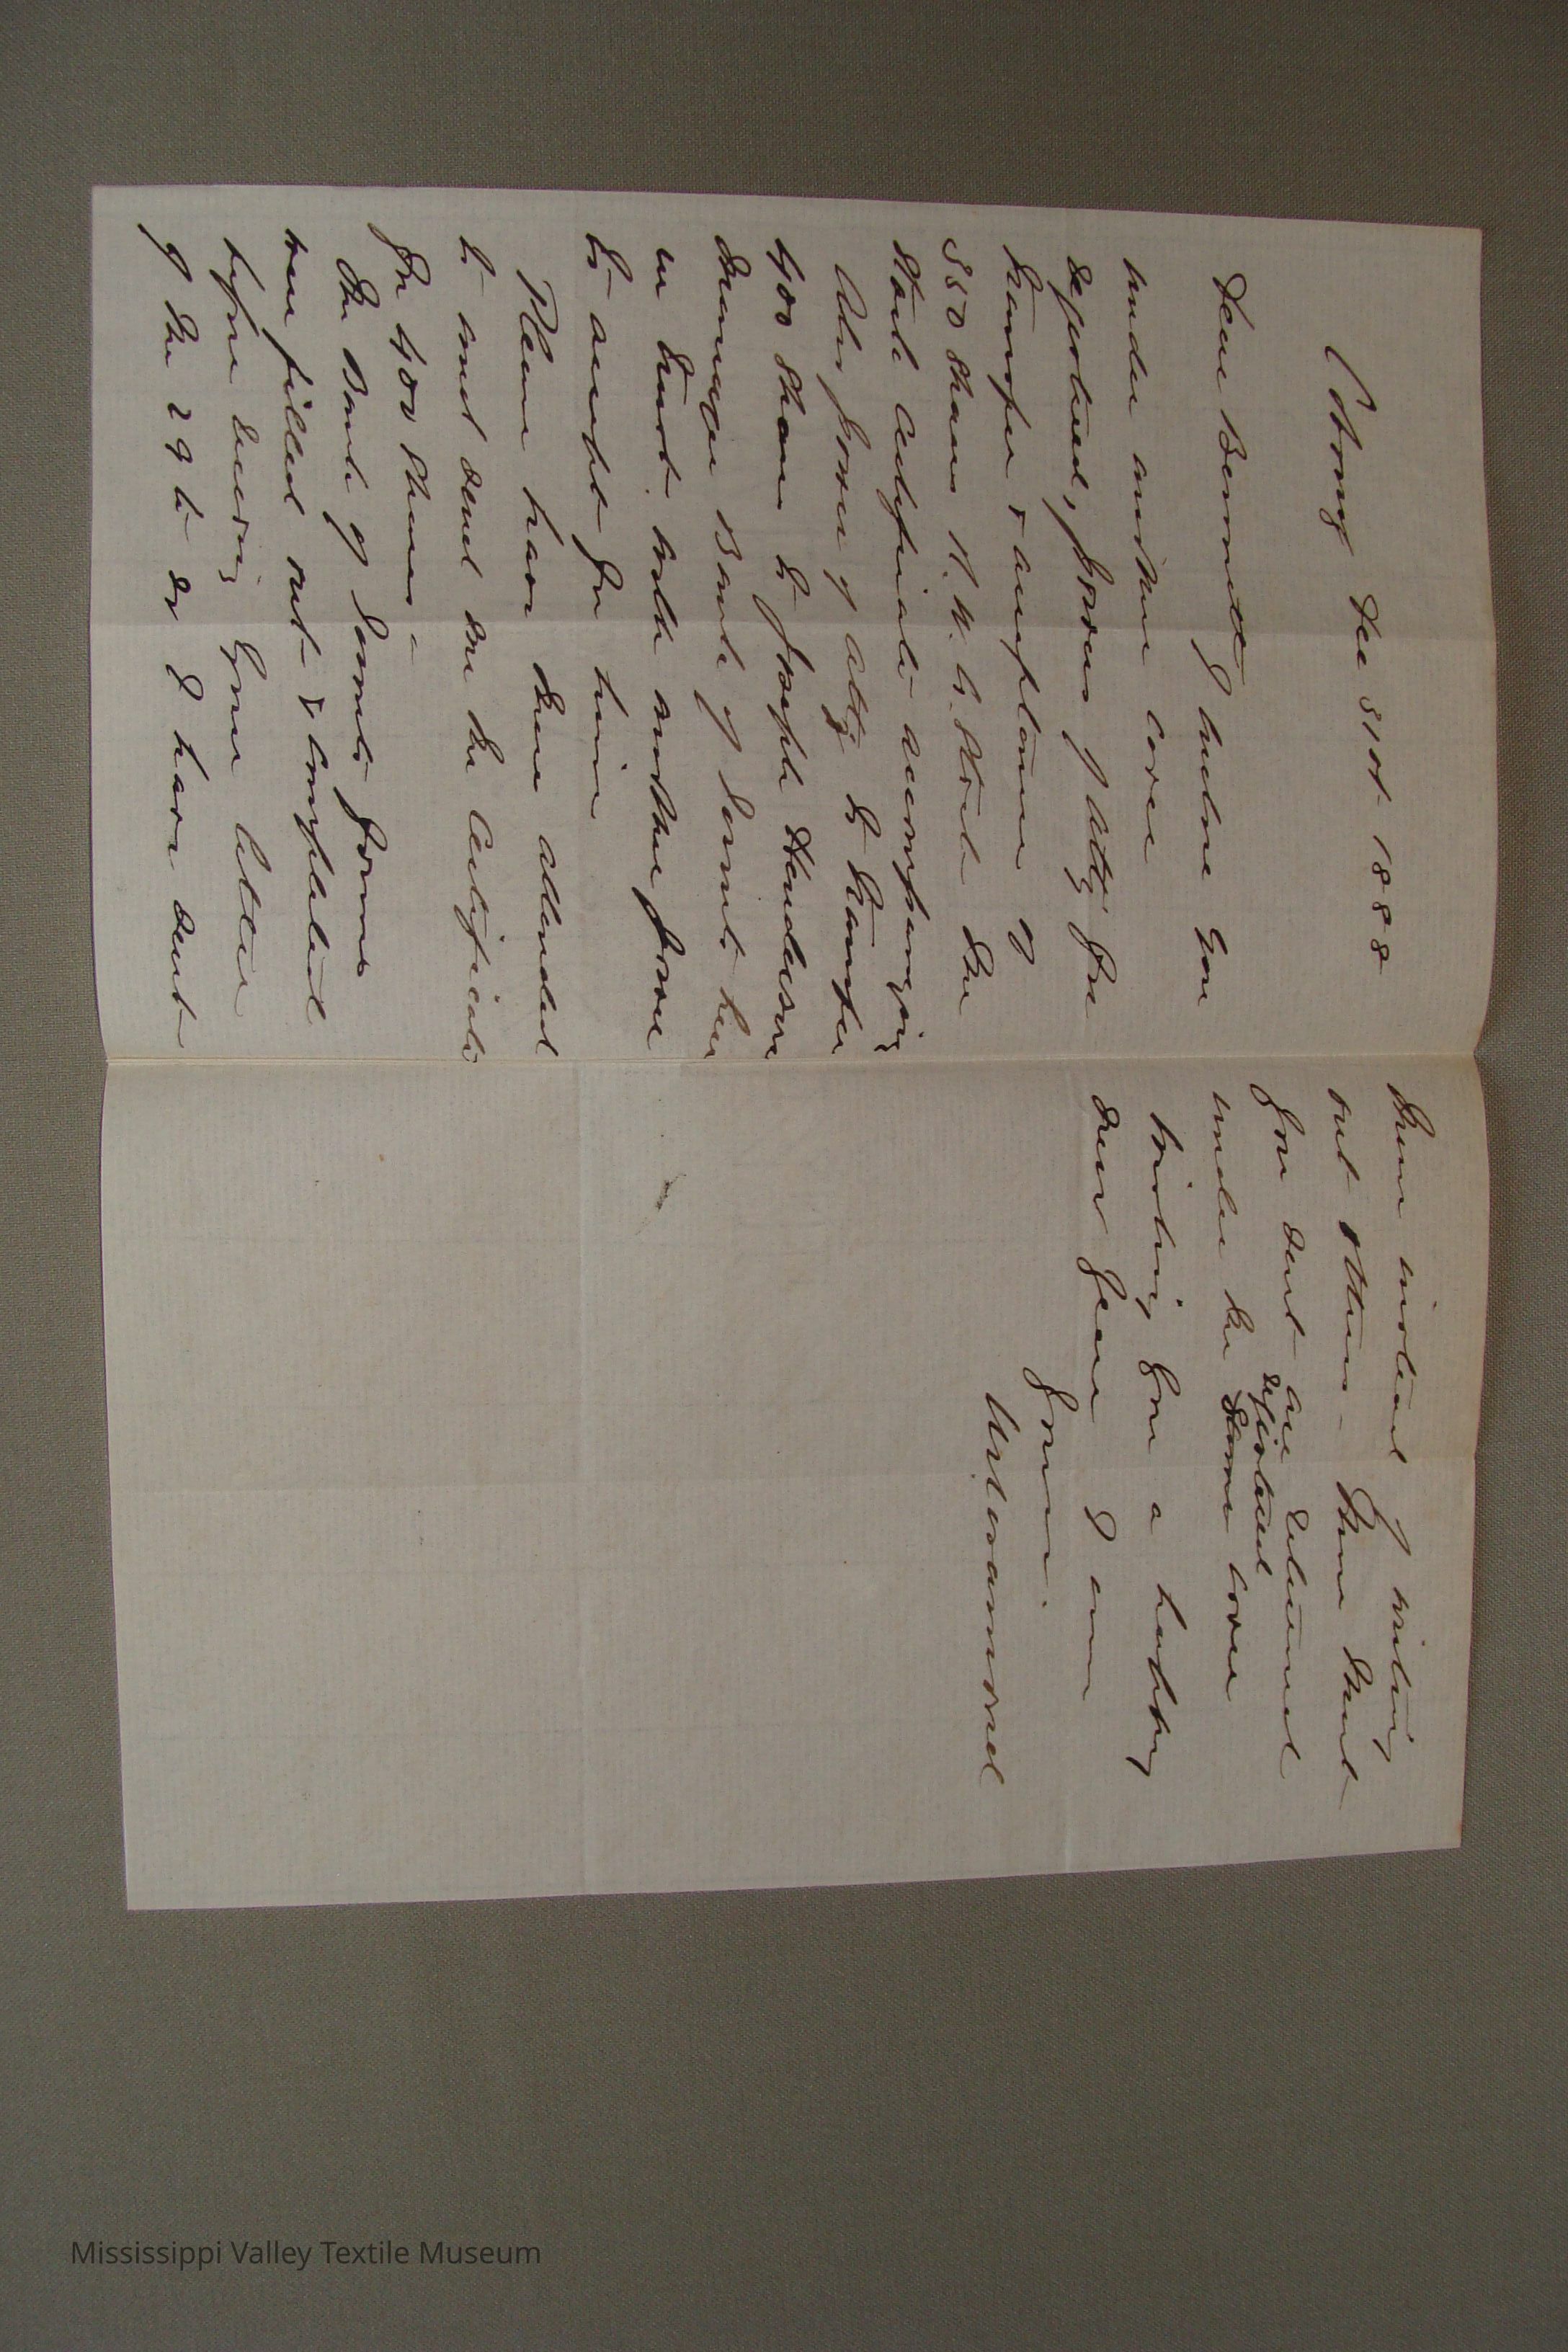 Cobourg Dec 31st 1888
Dear Bennett I enclose you
under another cover
registered, power of atty for
transfer & acceptance of
550 Shares N.W.L. Stock the
Stock certificate accompanying
Also power of atty to transfer
400 Shares to Joseph Henderson
Manager Bank of Toronto here
in trust with another power
to accept for him
Please have this attended
to and send me the certificate
for 400 Shares -
The Bank of Toronto forms
were filled out & completed
before receiving your letter
of the 29th so I have sent
them instead of writing
out others - Those that
you sent are returned
registered
under the same cover
Wishing you a happy
new year I am
Yours